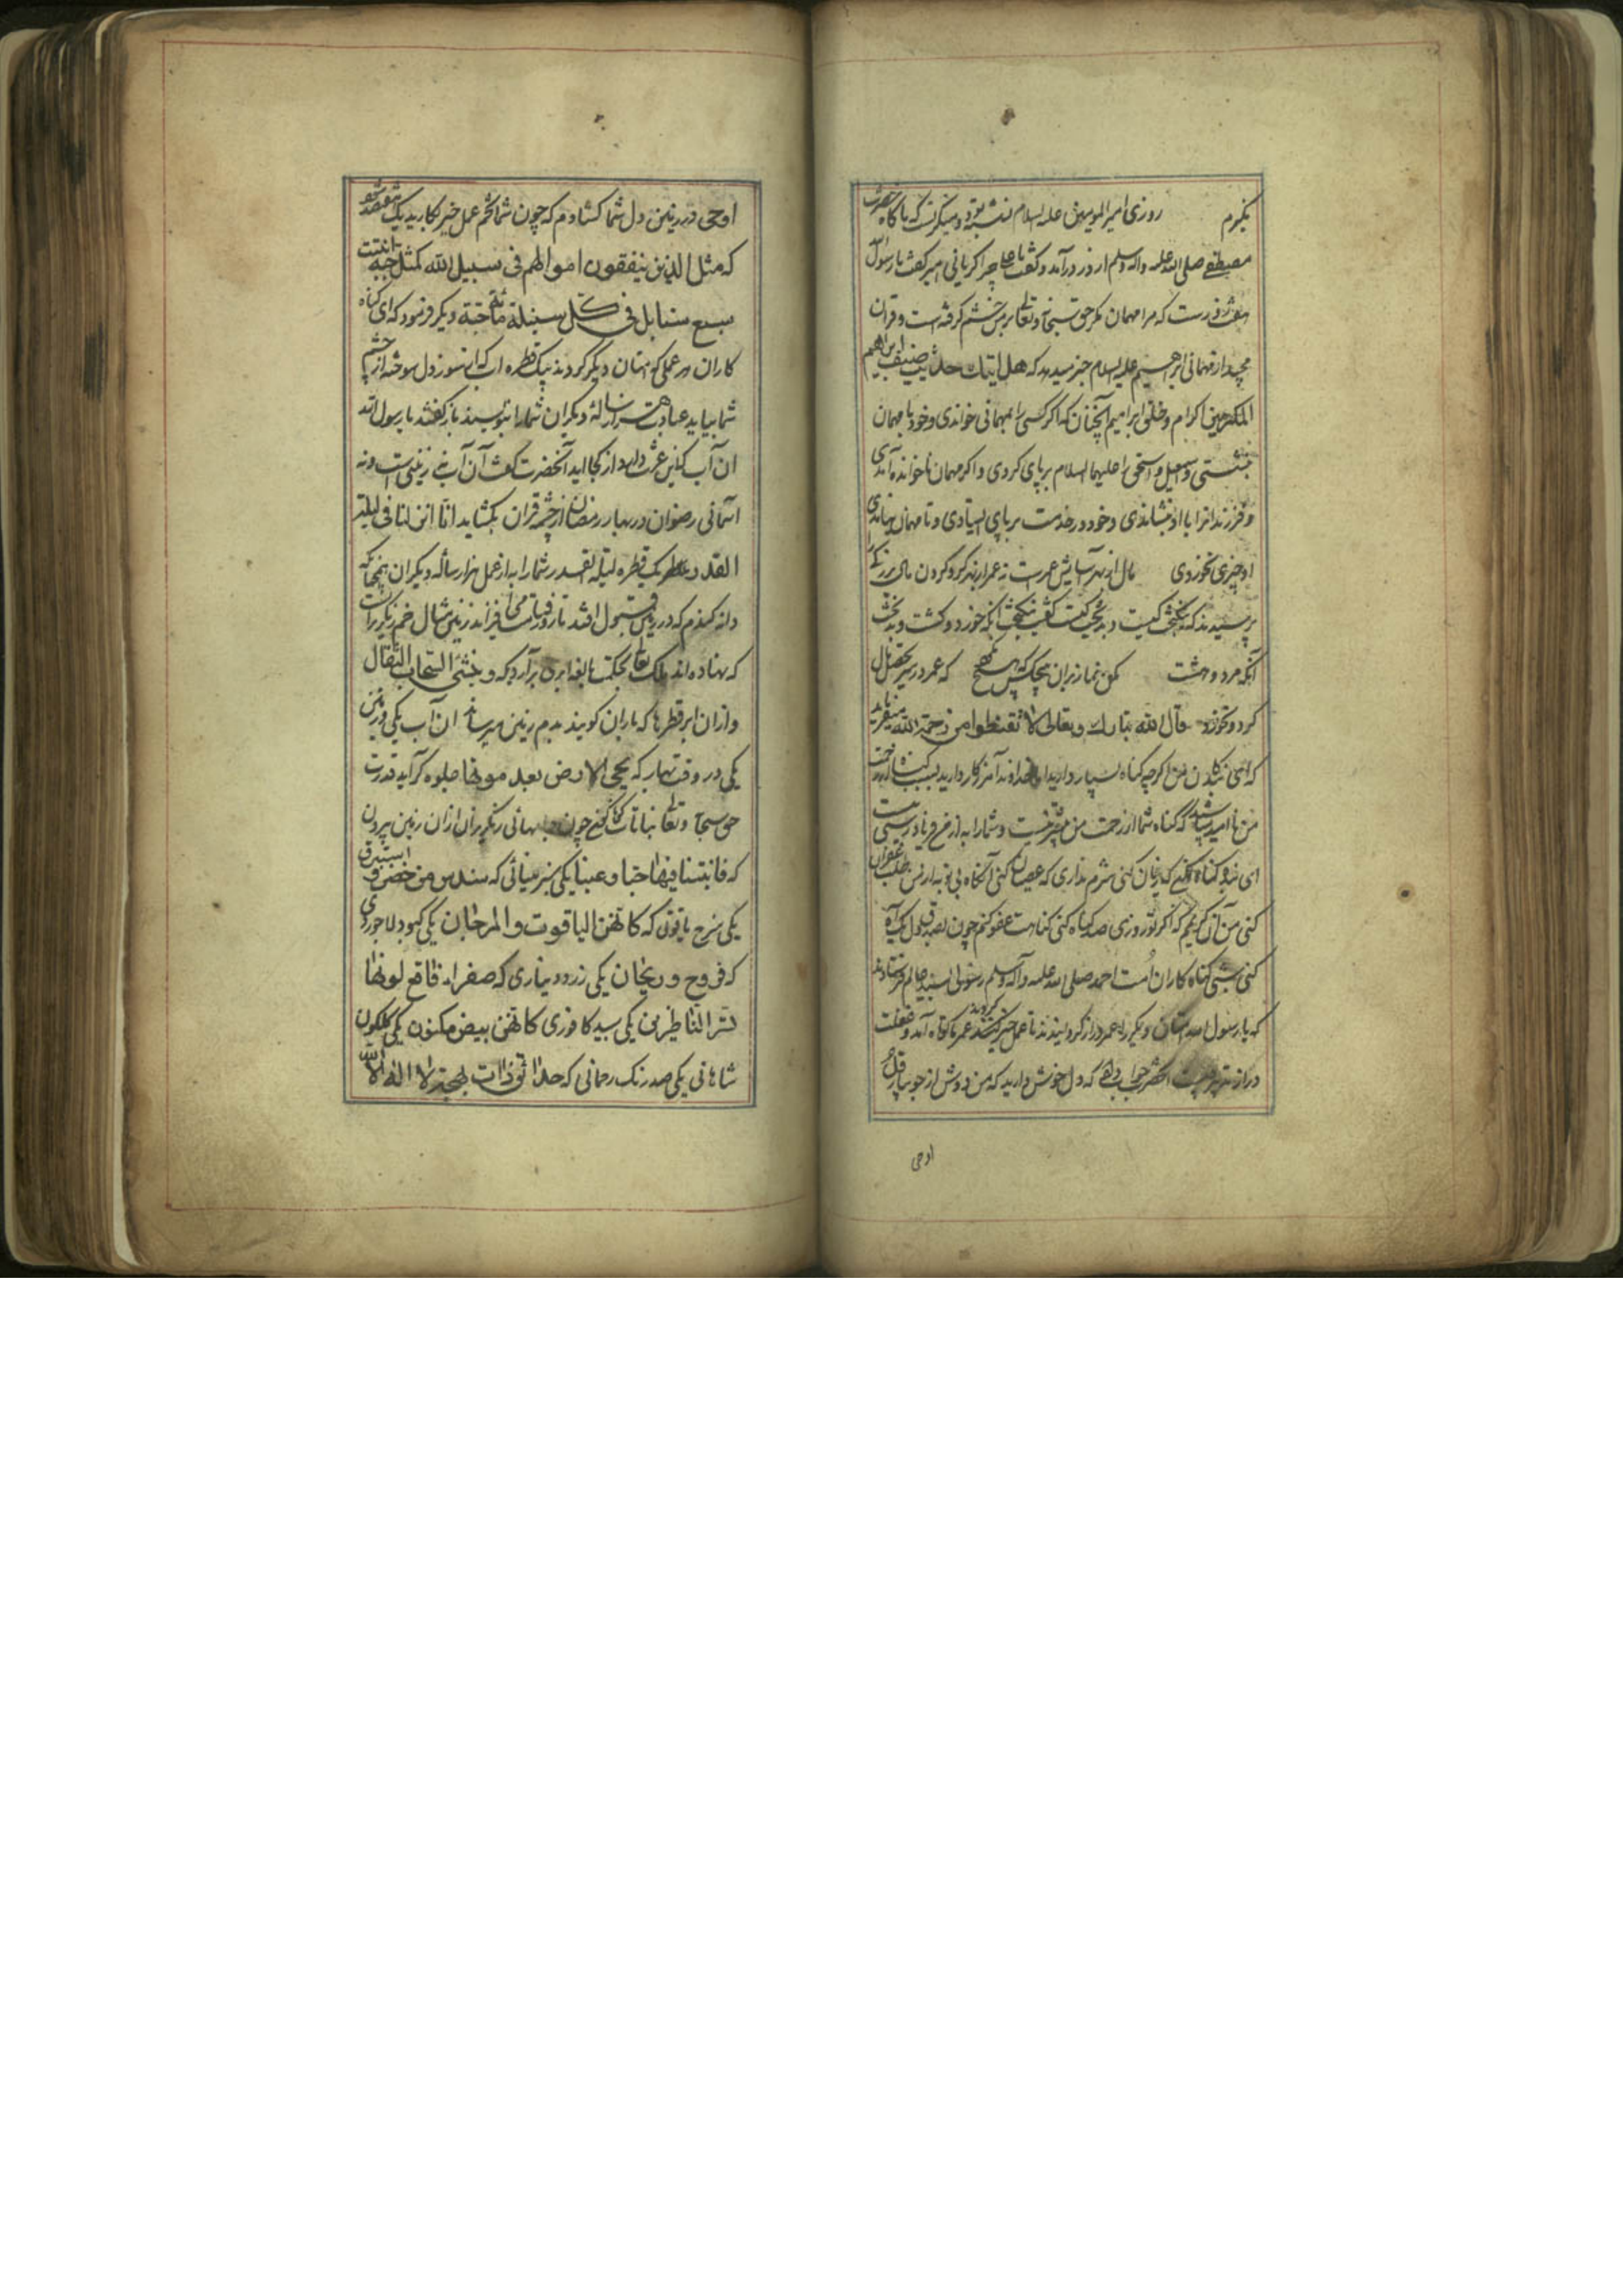 بگیرم روزی امیرالمومنین علیه السلام نشسته بود و میگریست که ناگاه حضرت
مصطفی صلی الله علیه واله وسلم از در درآمد و گفت یا علی چرا گریانی امیر گفت یا رسول الله
هفت روزست که مرا مهمان مگر حق سبحانه وتعالی برمن خشم گرفته است و قران
مجید از مهمانی ابرهیم علیه السلام خبر میدهد که هل اتیك حدیث ضیف ابراهیم
المکرمین اکرام و خلق ابراهیم آنچنان که اگر کسی را بمهمانی خواندی و خود با مهمان
بنشستی و اسمعیل و اسحق را علیهما السلام برپای کردی و اگر مهمان ناخوانده آمدی
و فرزندانرا با او بنشاندی و خود در خدمت برپای ایستادی و تا مهمان
او چیزی نخوردی مال از بهر آسایش عمرست نه عمر از بهر گرد کردن مال بزرگی را
پرسیدند که نیکبخت کیست و بدبخت کیست گفت نیکبخت آنکه خورد و کشت و بدبخت
آنکه مرد و هشت مکن نماز بران هیچکس که هیچ نکرد که عمر در سر تحصیل مال
کرد و نخورد قال الله تبارك وتعالی لا تقنطوا من رحمة الله میفرماید
که ای بندگان من اگر چه گناه بسیار دارید اما خداوند آمرزگار دارید بسبب گناه از رحمت
من ناامید مباشید که گناه شما از رحمت من بیشتر نیست و شمارا به از من فریادرسی نیست
ای بنده گناه کنی که زیان کنی شرم نداری که عصیان کنی آنگاه بی توبه از من طلب غفران
کنی من آن کریمم که اگر تو روزی صد گناه کنی گناهت عفو کنم چون بصدق دل یک آه
کنی شبی گناه کاران امت احمد صلی الله علیه وآله وسلم رسولی بسید عالم فرستادند
که یا رسول الله امتان دیگر را عمر دراز گردانیدند تا عمل خیر کردند عمر ما کوتاه آمد و غفلت
دراز حضرت جواب داد که دل خوش دارید که من دوش از جویبار قل
اوحی
اوحی در زمین دل شما گشادم که چون شما تخم عمل خیر بکارید یک هفتصد شود
که مثل الذین ینفقون اموالهم فی سبیل الله کمثل حبة انبتت
سبع سنابل فی کل سنبلة مائة حبة دیگر فرمود که ای گناه
کاران هر عملی که امتان دیگر کردند یک قطره اب که از سوز دل سوخته از چشم
شما بیاید عبادت هزار سالهٔ دیگران شما را بنویسند باز گفتند یا رسول الله
ان آب کجا اید آنحضرت گفت آن آب نه زمینی است و نه
اسمانی رضوان در بهار رمضان از چشمه قران بگشاید انا انزلناه فی لیلة
القدر یک قطره لیلة القدر شما را به از عمل هزار ساله دیگران همچنانکه
دانه گندم که در زمین قبول افتد تا روز قیامت می افزاید زمین مثال خم رنگرزانست
که نهاده اند ملک تعالی بحکمت بالغه ابری برآرد که وینشئ السحاب الثقال
و ازان ابر قطرها که باران گویند بدم زمین میرساند ان آب یکی در زمین
یکی در وقت بهار که یحی الارض بعد موتها جلوه گر آید قدرت
حق سبحانه وتعالی نباتات گوناگون چون جامهائی رنگرزان ازان زمین بیرون
که فانبتنا فیها حبا وعنبا یکی سبز مینائی که سندس من خضر و استبرق
یکی سرخ یاقوتی که کانهن الیاقوت والمرجان یکی کبود لاجوردی
که فروح وریحان یکی زرد دیناری که صفراء فاقع لونها
تسر الناظرین یکی سپید کافوری کانهن بیض مکنون یکی گلگون
شاهانی یکی صد رنگ رحمانی که حدائق ذات بهجة لا اله الا الله